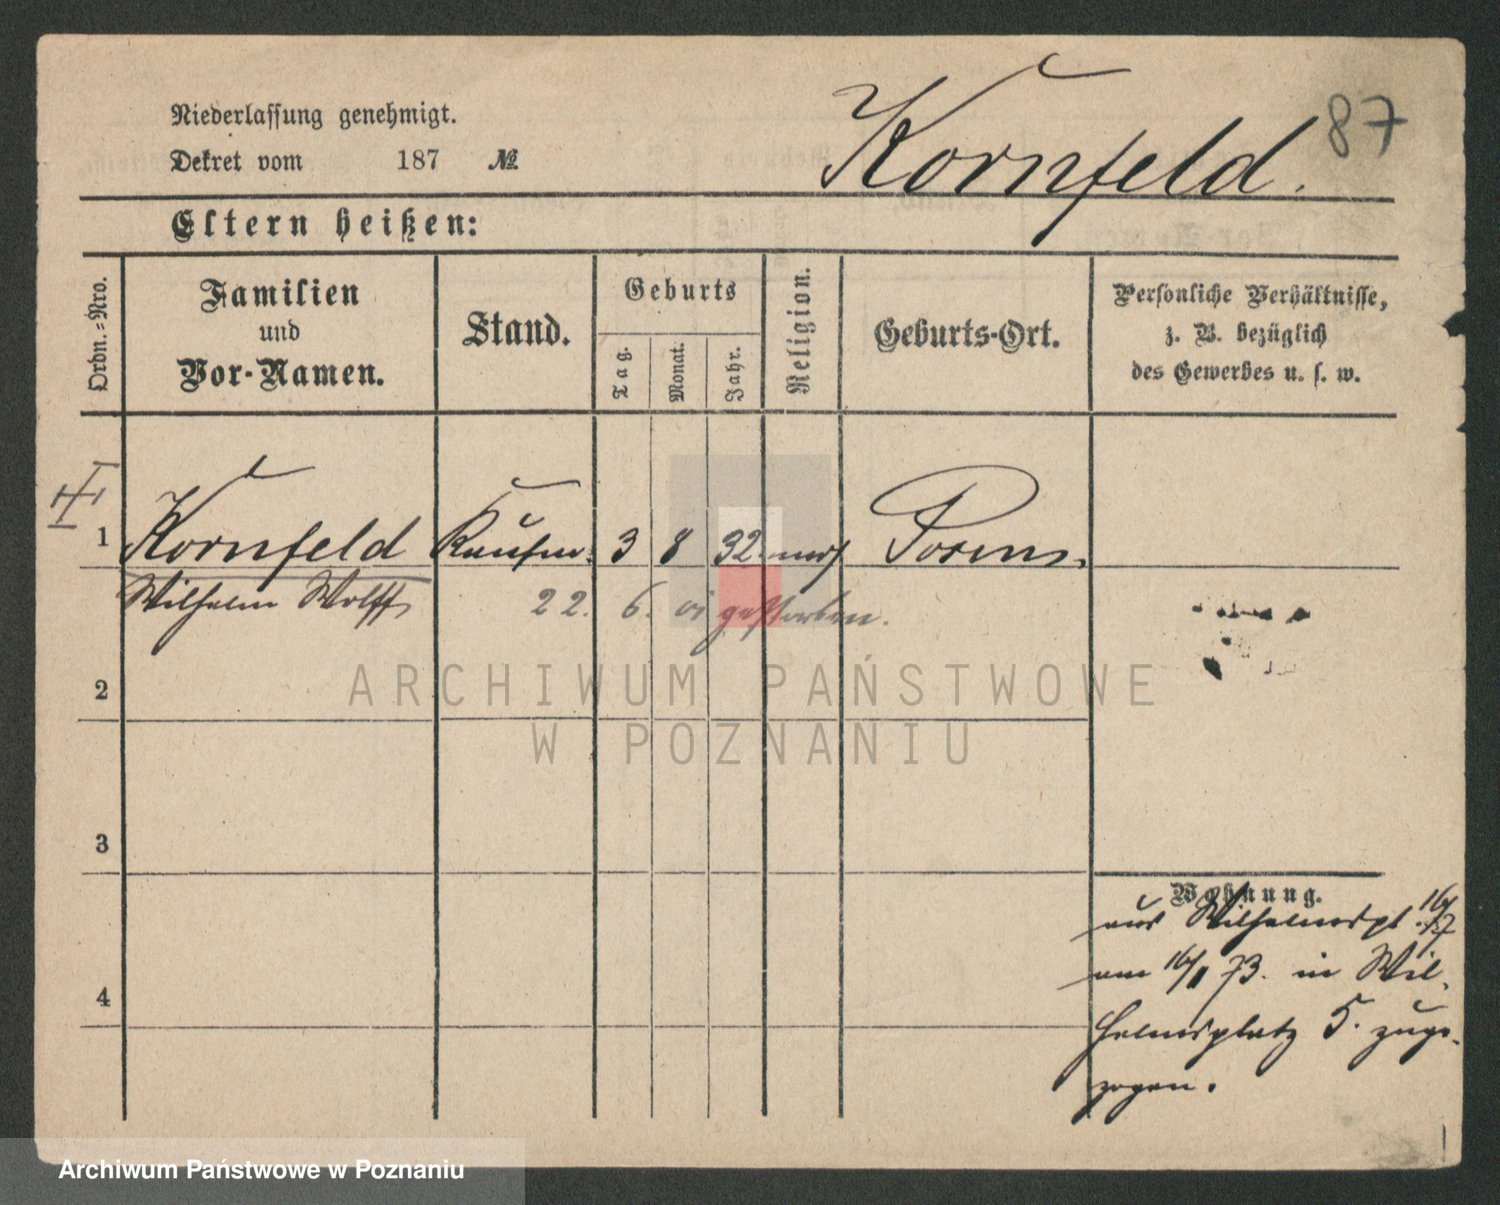 Niederlassung genehmigt.
Dekret vom 187 №
Kornfeld.
87
Eltern heißen:
Ordn.=Nro.
Familien
und
Vor-Namen.
Stand.
Geburts
Tag.
Monat.
Jahr.
Religion.
Geburts-Ort.
Persönliche Verhältnisse,
z. B. bezüglich
des Gewerbes u. s. w.
1 Kornfeld Kaufm. 3 8 32. mos Posen.
Wilhelm Wolff
22. 6. gestorben.
ARCHIWUM PAŃSTWOWE
W POZNANIU
2
3
4
Wohnung.
aus Wilhelmspl.
am 16/ 73. in Wil-
helmsplatz 5. zuge-
zogen.
Archiwum Państwowe w Poznaniu